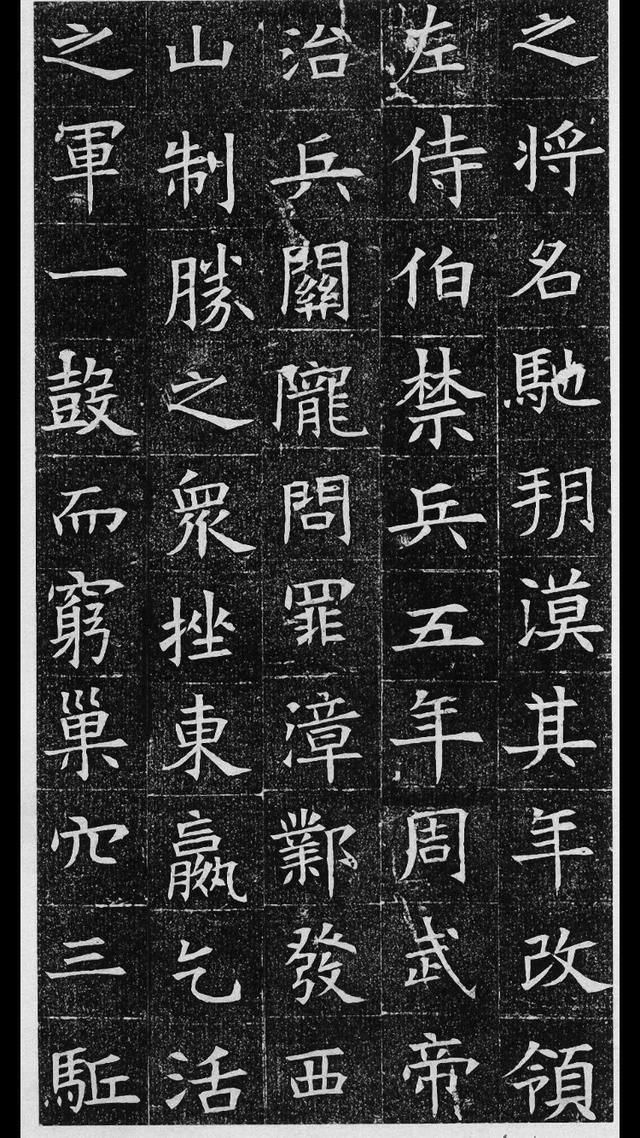 之將名馳朔漠其年改領
左侍伯禁兵五年周武帝
治兵關隴問罪漳鄴發西
山制勝之衆挫東嬴乞活
之軍一鼓而窮巢穴三駈